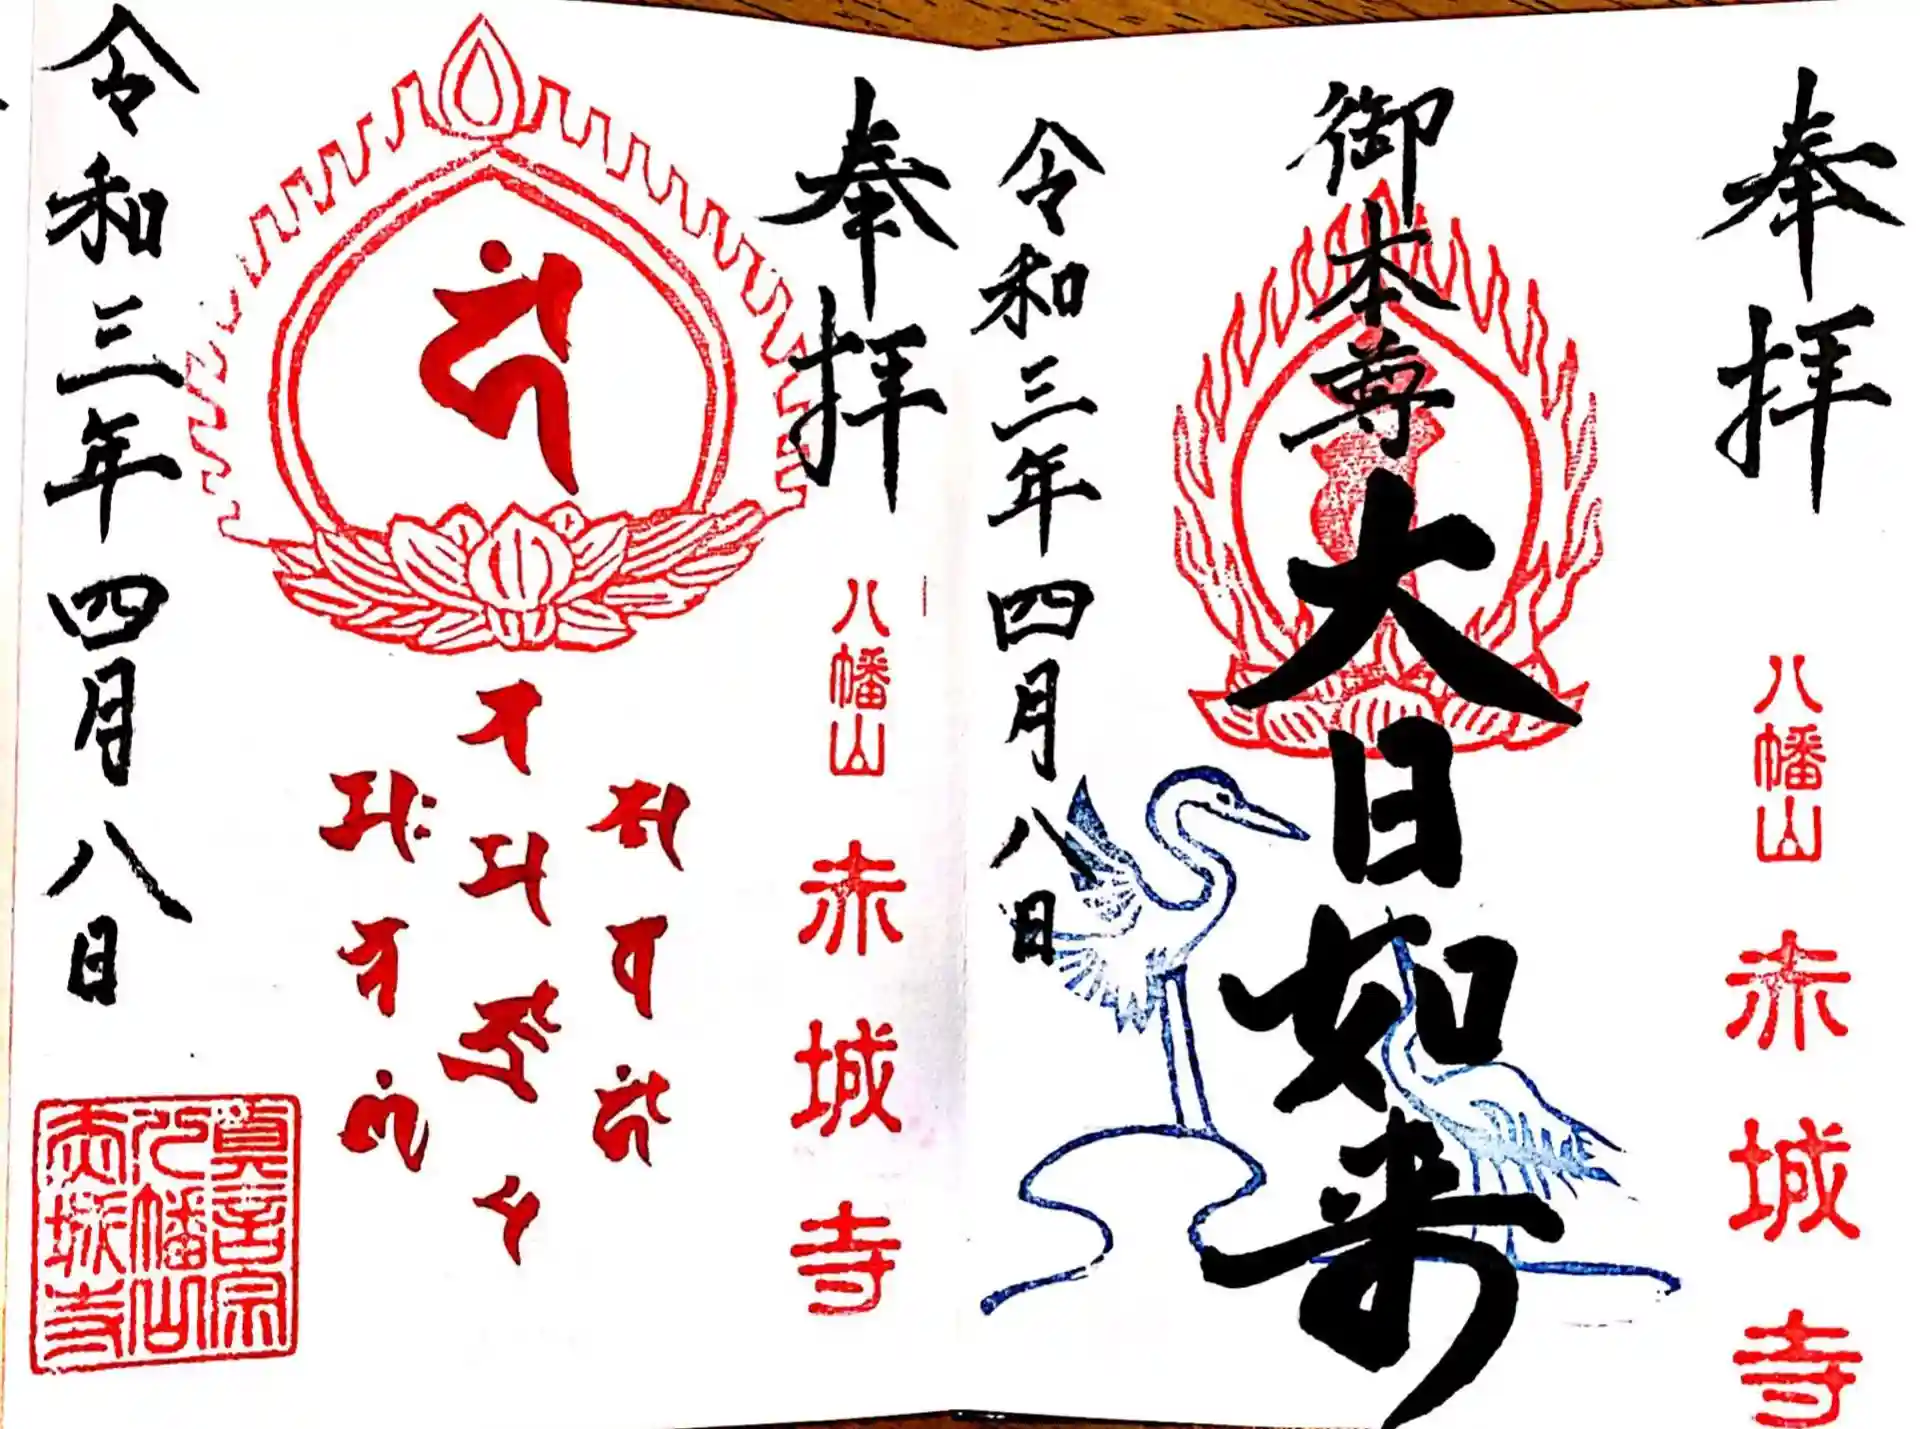 奉拝 八幡山 赤城寺
御本尊 大日如来
令和三年四月八日
奉拝 八幡山 赤城寺
令和三年四月八日
眞言宗
八幡山
赤城寺